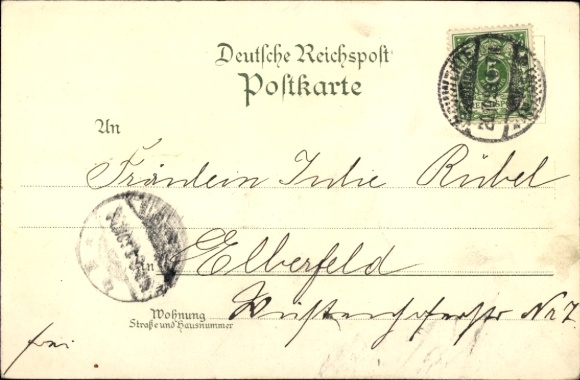 Deutsche Reichspost
Postkarte
5
An
Fräulein Julie Rübel
in
Elberfeld
Wohnung
Straße und Hausnummer
Nr 7
frei